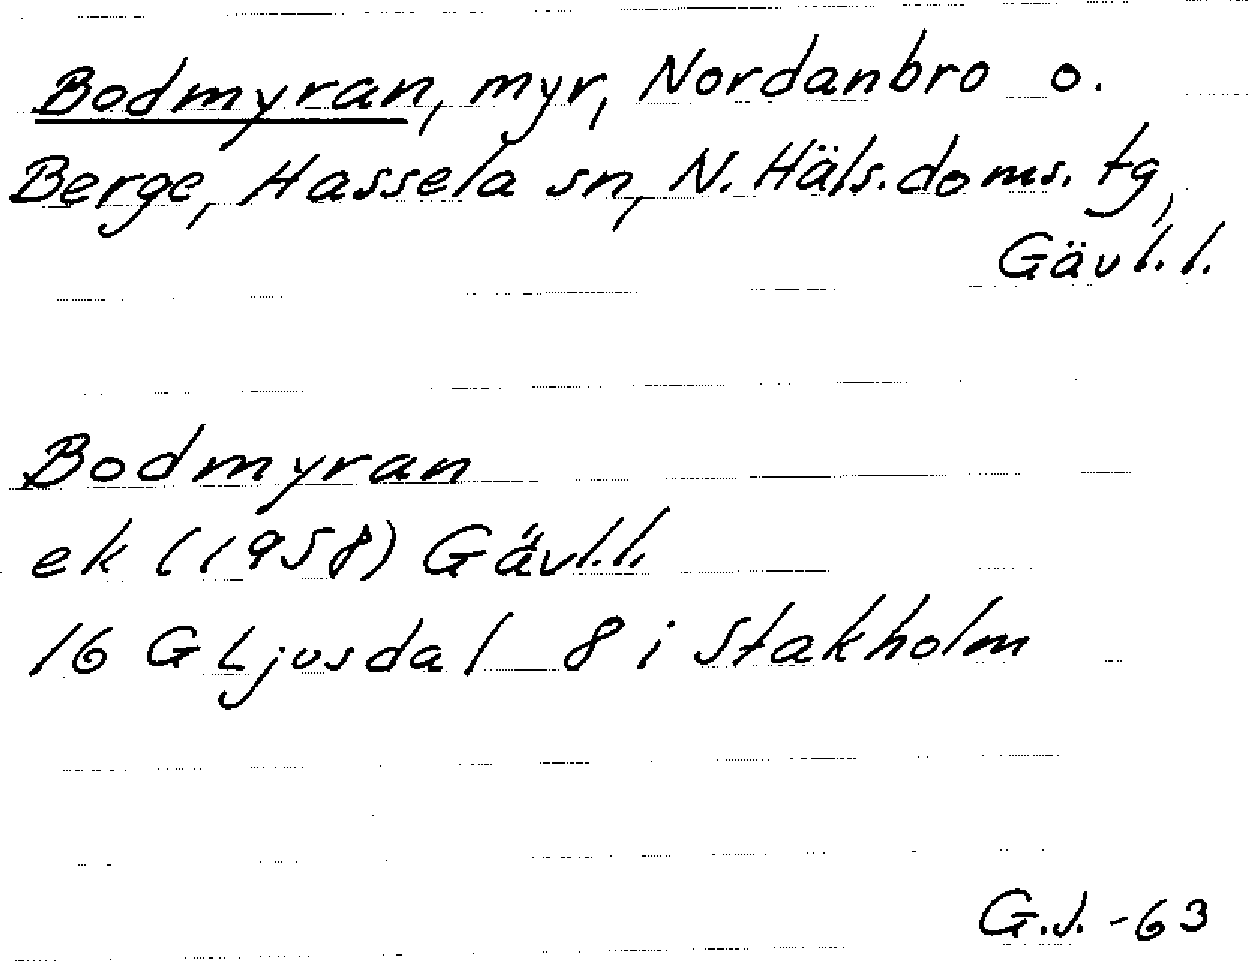 Bodmyran, myr, Nordanbro o.
Berge, Hassela sn, N. Häls. doms. tg,
Gävl. l.
Bodmyran
ek (1958) Gävl. l.
16 G Ljusdal 8 i Stakholm
G.J. -63